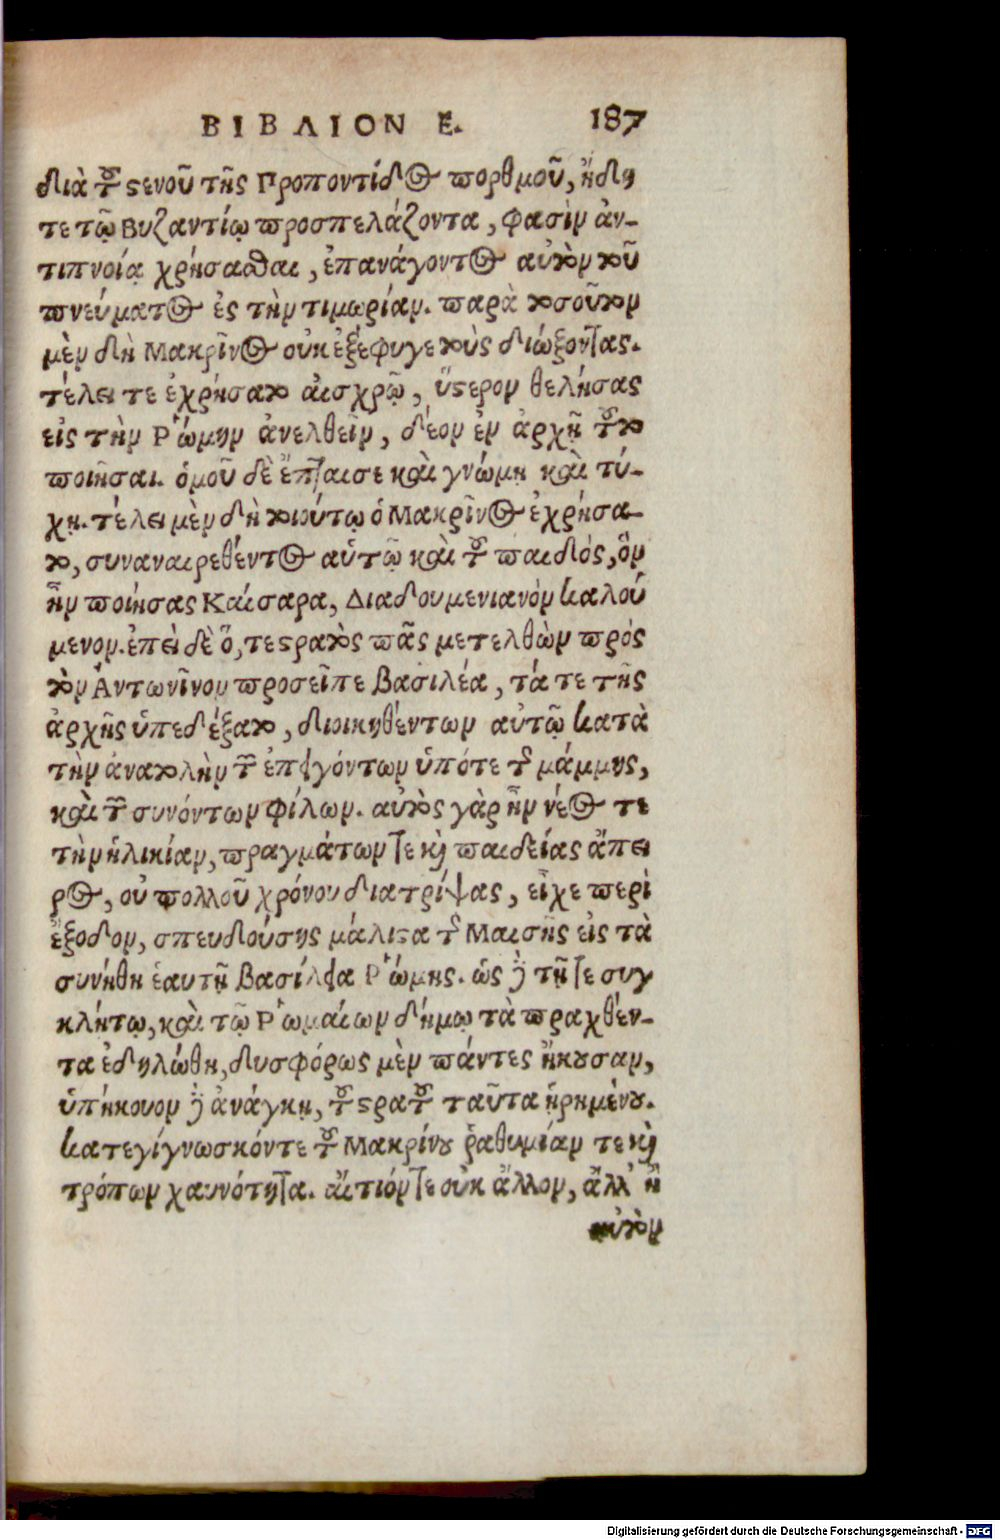 ΒΙΒΛΙΟΝ Ε. 187
διὰ τοῦ στενοῦ τῆς Προποντίδος πορθμοῦ, ἤδη
τε τῷ Βυζαντίῳ προσπελάζοντα, φασὶν ἀν-
τιπνοίᾳ χρήσασθαι, ἐπανάγοντος αὐτὸν τοῦ
πνεύματος ἐς τὴν τιμωρίαν. παρὰ τοσοῦτον
μὲν δὴ Μακρῖνος οὐκ ἐξέφυγε τοὺς διώξοντας.
τέλει τε ἐχρήσατο αἰσχρῷ, ὕστερον θελήσας
εἰς τὴν Ῥώμην ἀνελθεῖν, δέον ἐν ἀρχῇ τοῦτο
ποιῆσαι. ὁμοῦ δὲ ἔπταισε καὶ γνώμῃ καὶ τύ-
χῃ. τέλει μὲν δὴ τοιούτῳ ὁ Μακρῖνος ἐχρήσα-
το, συναναιρεθέντος αὑτῷ καὶ τοῦ παιδός, ὃν
ἦν ποιήσας Καίσαρα, Διαδουμενιανὸν καλού
μενον. ἐπεὶ δὲ ὅ, τε στρατὸς πᾶς μετελθὼν πρός
τὸν Ἀντωνῖνον προσεῖπε βασιλέα, τά τε τῆς
ἀρχῆς ὑπεδέξατο, διοικηθέντων αὐτῷ κατὰ
τὴν ἀνατολὴν τῶν ἐπειγόντων ὑπό τε τῆς μάμμης,
καὶ τῶν συνόντων φίλων. αὐτὸς γὰρ ἦν νέος τε
τὴν ἡλικίαν, πραγμάτων τε καὶ παιδείας ἄπει
ρος, οὐ πολλοῦ χρόνου διατρίψας, εἶχε περὶ
ἔξοδον, σπευδούσης μάλιστα τῆς Μαισῆς εἰς τὰ
συνήθη ἑαυτῇ βασίλεια Ῥώμης. ὡς δὲ τῇ τε συγ
κλήτῳ, καὶ τῷ Ῥωμαίων δήμῳ τὰ πραχθέν-
τα ἐδηλώθη, δυσφόρως μὲν πάντες ἤκουσαν,
ὑπήκουον δὲ ἀνάγκῃ, τοῦ στρατοῦ ταῦτα ᾑρημένου.
κατεγίγνωσκόν τε τοῦ Μακρίνου ῥαθυμίαν τε καὶ
τρόπων χαυνότητα. αἴτιόν τε οὐκ ἄλλον, ἀλλ' ἢ
αὐτὸν
Digitalisierung gefördert durch die Deutsche Forschungsgemeinschaft - DFG